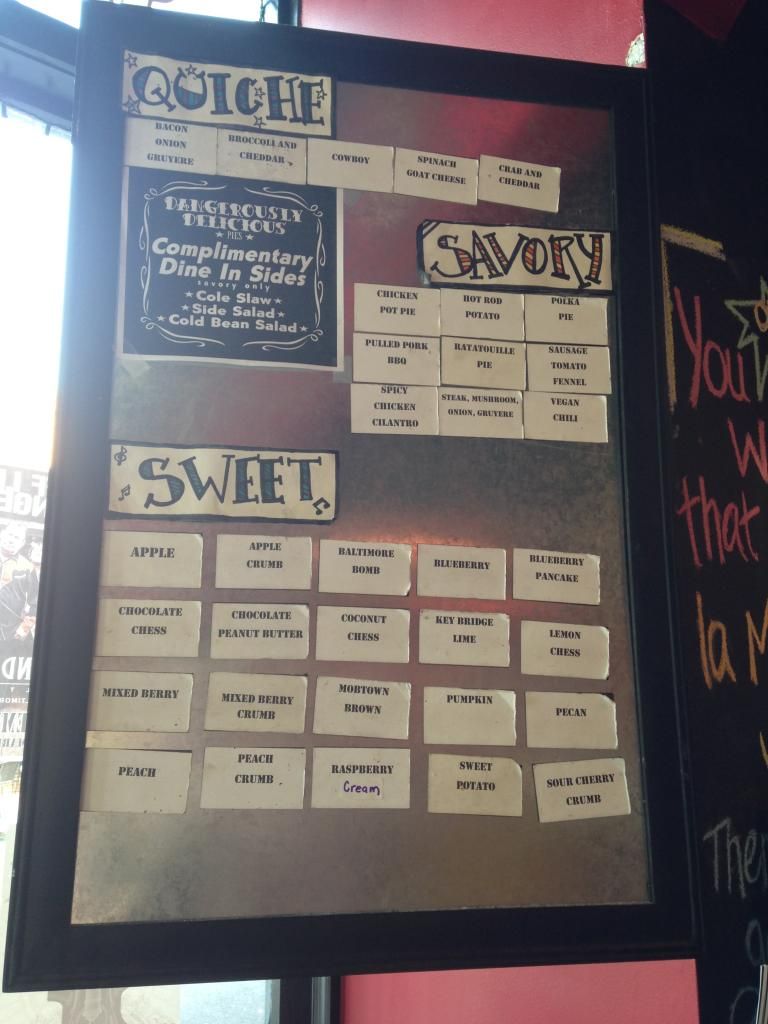 QUICHE
BACON
ONION
GRUYERE
BROCCOLI AND
CHEDDAR
COWBOY
SPINACH
GOAT CHEESE
CRAB AND
CHEDDAR
DANGEROUSLY
DELICIOUS
★ PIES ★
Complimentary
Dine In Sides
savory only
★ Cole Slaw ★
★ Side Salad ★
★ Cold Bean Salad ★
SAVORY
CHICKEN
POT PIE
HOT ROD
POTATO
POLKA
PIE
PULLED PORK
BBQ
RATATOUILLE
PIE
SAUSAGE
TOMATO
FENNEL
SPICY
CHICKEN
CILANTRO
STEAK, MUSHROOM,
ONION, GRUYERE
VEGAN
CHILI
SWEET
APPLE
APPLE
CRUMB
BALTIMORE
BOMB
BLUEBERRY
BLUEBERRY
PANCAKE
CHOCOLATE
CHESS
CHOCOLATE
PEANUT BUTTER
COCONUT
CHESS
KEY BRIDGE
LIME
LEMON
CHESS
MIXED BERRY
MIXED BERRY
CRUMB
MOBTOWN
BROWN
PUMPKIN
PECAN
PEACH
PEACH
CRUMB
RASPBERRY
Cream
SWEET
POTATO
SOUR CHERRY
CRUMB
You
W
that
la M